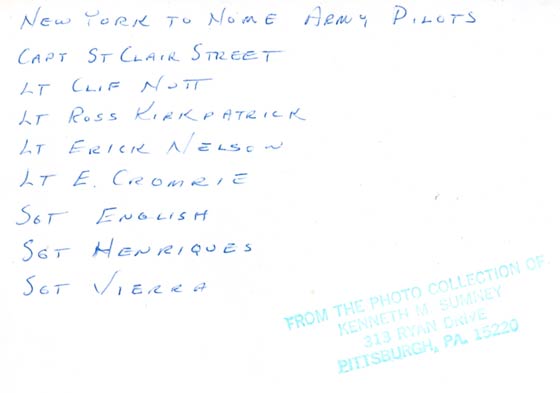 NEW YORK TO NOME ARMY PILOTS
CAPT ST CLAIR STREET
LT CLIF NUTT
LT ROSS KIRKPATRICK
LT ERICK NELSON
LT E. CROMRIE
SGT ENGLISH
SGT HENRIQUES
SGT VIERRA
FROM THE PHOTO COLLECTION OF
KENNETH M. SUMNEY
313 RYAN DRIVE
PITTSBURGH, PA. 15220